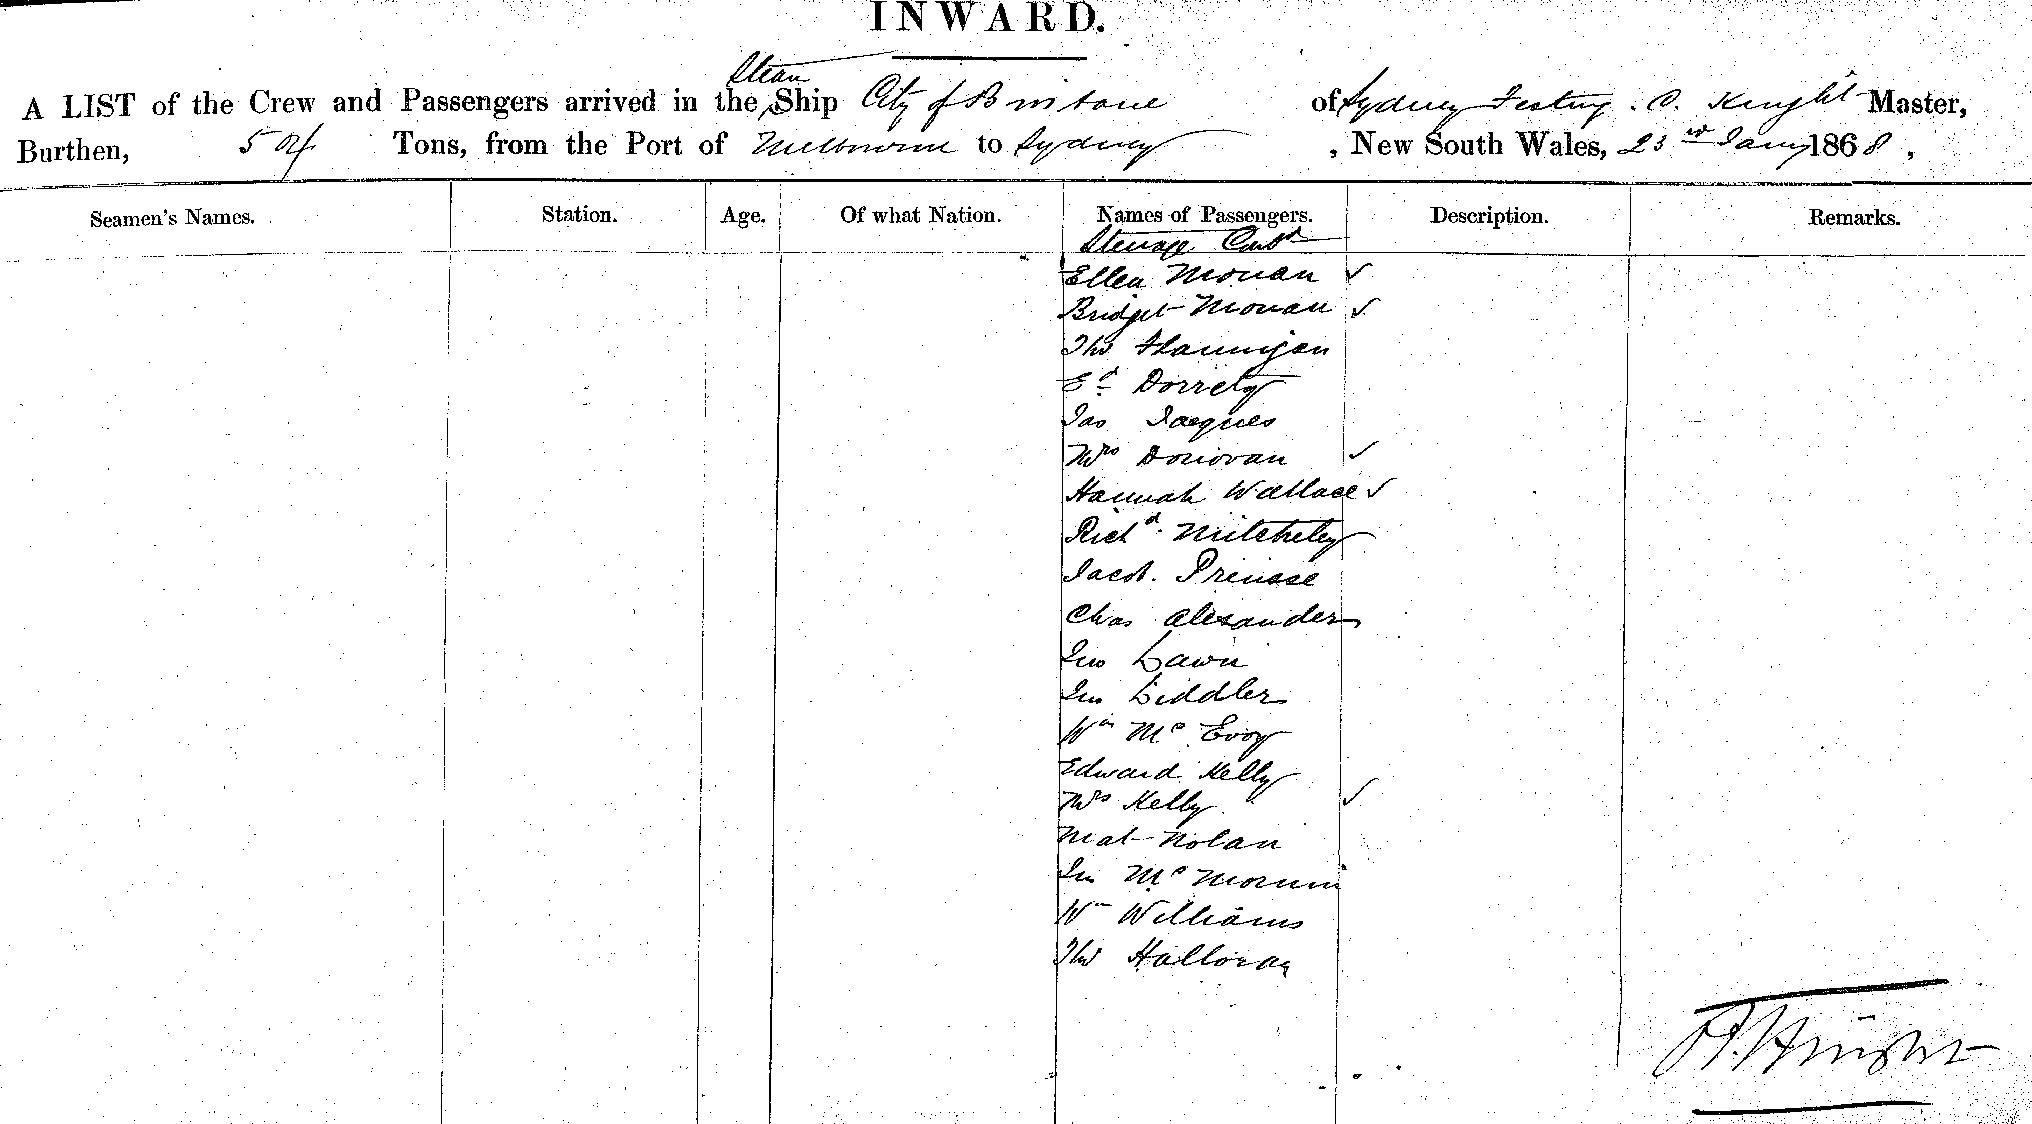 INWARD.
A LIST of the Crew and Passengers arrived in the Steam Ship City of Brisbane of Sydney Festing. O. Knight Master,
Burthen, 504 Tons, from the Port of Melbourne to Sydney, New South Wales, 23rd Jany 1868,
Seamen's Names. Station. Age. Of what Nation. Names of Passengers. Description. Remarks.
Steerage Contd
Ellen Monan ✓
Bridget Monan ✓
Thos Flannigan
Ed Dorrety
Jas Jacques
Mrs Donovan ✓
Hannah Wallace ✓
Richd
Jacob. Preusse
Chas Alexander
Jno Lawn
Jno Liddler
Wm Mc Evoy
Edward Kelly
Mrs Kelly ✓
Mat Nolan
Jno Mc
Wm Williams
Thos Halloran
Knight